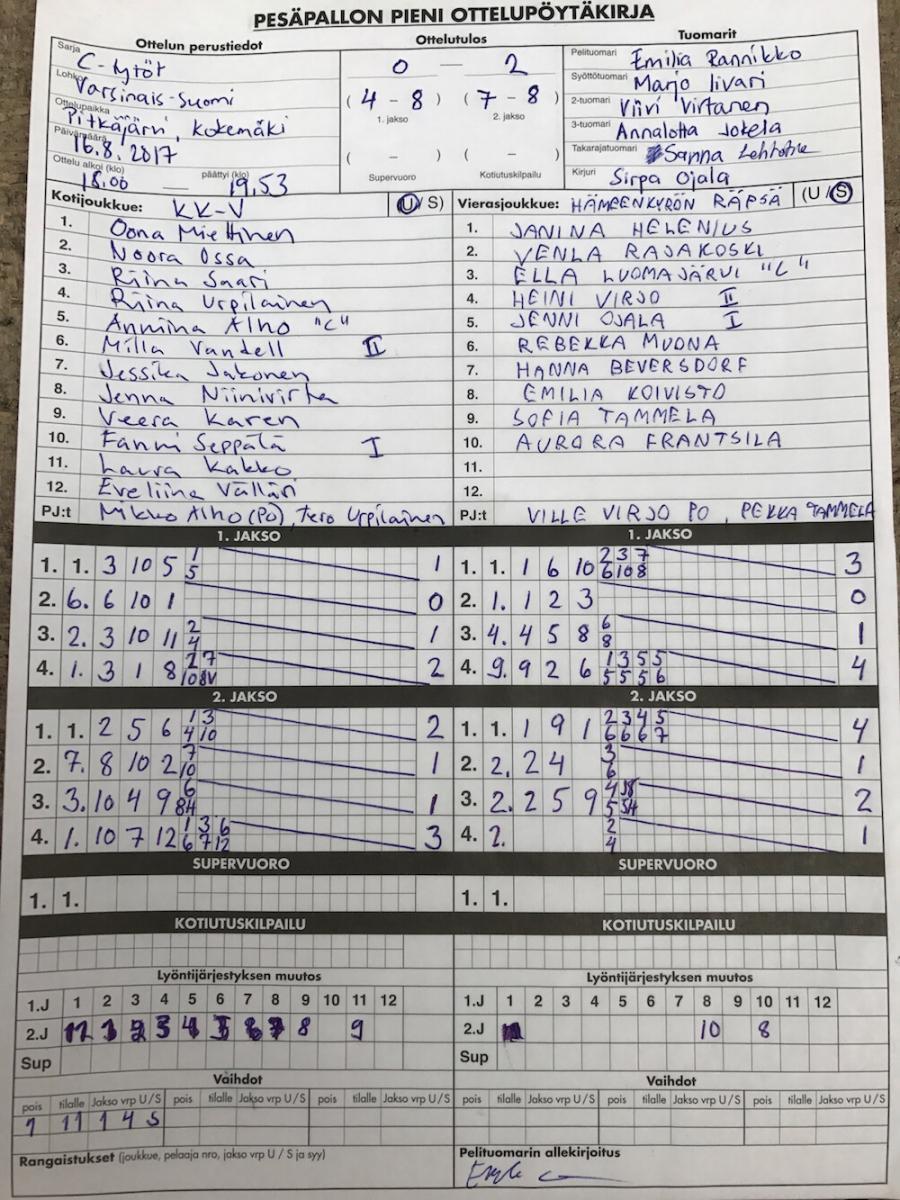 PESÄPALLON PIENI OTTELUPÖYTÄKIRJA
Ottelun perustiedot
Sarja C-tytöt
Lohko Varsinais-Suomi
Ottelupaikka Pitkäjärvi, Kokemäki
Päivämäärä 16.8.2017
Ottelu alkoi (klo) päättyi (klo)
18.00 — 19.53
Ottelutulos
0 — 2
(4 - 8) (7 - 8)
1. jakso 2. jakso
( - ) ( - )
Supervuoro Kotiutuskilpailu
Tuomarit
Pelituomari Emilia Rannikko
Syöttötuomari Marjo Iivari
2-tuomari Viivi Virtanen
3-tuomari Annalotta Jokela
Takarajatuomari Sanna
Kirjuri Sirpa Ojala
Kotijoukkue: KK-V (U/S)
1. Oona Miettinen
2. Noora Ossa
3. Riina Saari
4. Riina Urpilainen
5. Anniina Alho "C"
6. Milla Vandell II
7. Jessika Jakonen
8. Jenna Niinivirta
9. Veera Karen
10. Fanni Seppälä I
11. Laura Kakko
12. Eveliina Välläri
PJ:t Mikko Alho (PJ), Tero Urpilainen
Vierasjoukkue: HÄMEENKYRÖN RÄPSÄ (U/S)
1. JANINA HELENIUS
2. VENLA RAJAKOSKI
3. ELLA LUOMAJÄRVI "C"
4. HEINI VIRJO II
5. JENNI OJALA I
6. REBEKKA MUONA
7. HANNA BEVERSDORF
8. EMILIA KOIVISTO
9. SOFIA TAMMELA
10. AURORA FRANTSILA
11.
12.
PJ:t VILLE VIRJO PO, PEKKA TAMMELA
1. JAKSO
1. 1. 3 10 5 1 1
5
2. 6. 6 10 1 0
3. 2. 3 10 11 2 1
4
4. 1. 3 1 8 2 7 2
10 8V
1. JAKSO
1. 1. 1 6 10 2 3 7 3
6 10 8
2. 1. 1 2 3 0
3. 4. 4 5 8 6 1
8
4. 9. 9 2 6 1 3 5 5 4
5 5 5 6
2. JAKSO
1. 1. 2 5 6 1 3 2
4 10
2. 7. 8 10 2 7 1
10
3. 3. 10 4 9 6 1
84
4. 1. 10 7 12 1 3 6 3
6 7 12
2. JAKSO
1. 1. 1 9 1 2 3 4 5 4
6 6 6 7
2. 2. 2 4 3 1
6
3. 2. 2 5 9 4 2
5
4. 2. 2 1
4
SUPERVUORO
1. 1.
SUPERVUORO
1. 1.
KOTIUTUSKILPAILU
KOTIUTUSKILPAILU
Lyöntijärjestyksen muutos
1.J 1 2 3 4 5 6 7 8 9 10 11 12
2.J 8 9
Sup
Lyöntijärjestyksen muutos
1.J 1 2 3 4 5 6 7 8 9 10 11 12
2.J 10 8
Sup
Vaihdot
pois tilalle Jakso vrp U/S pois tilalle Jakso vrp U/S pois tilalle Jakso vrp U/S
1 11 1 4 S
Vaihdot
pois tilalle Jakso vrp U/S pois tilalle Jakso vrp U/S pois tilalle Jakso vrp U/S
Rangaistukset (joukkue, pelaaja nro, jakso vrp U / S ja syy)
Pelituomarin allekirjoitus